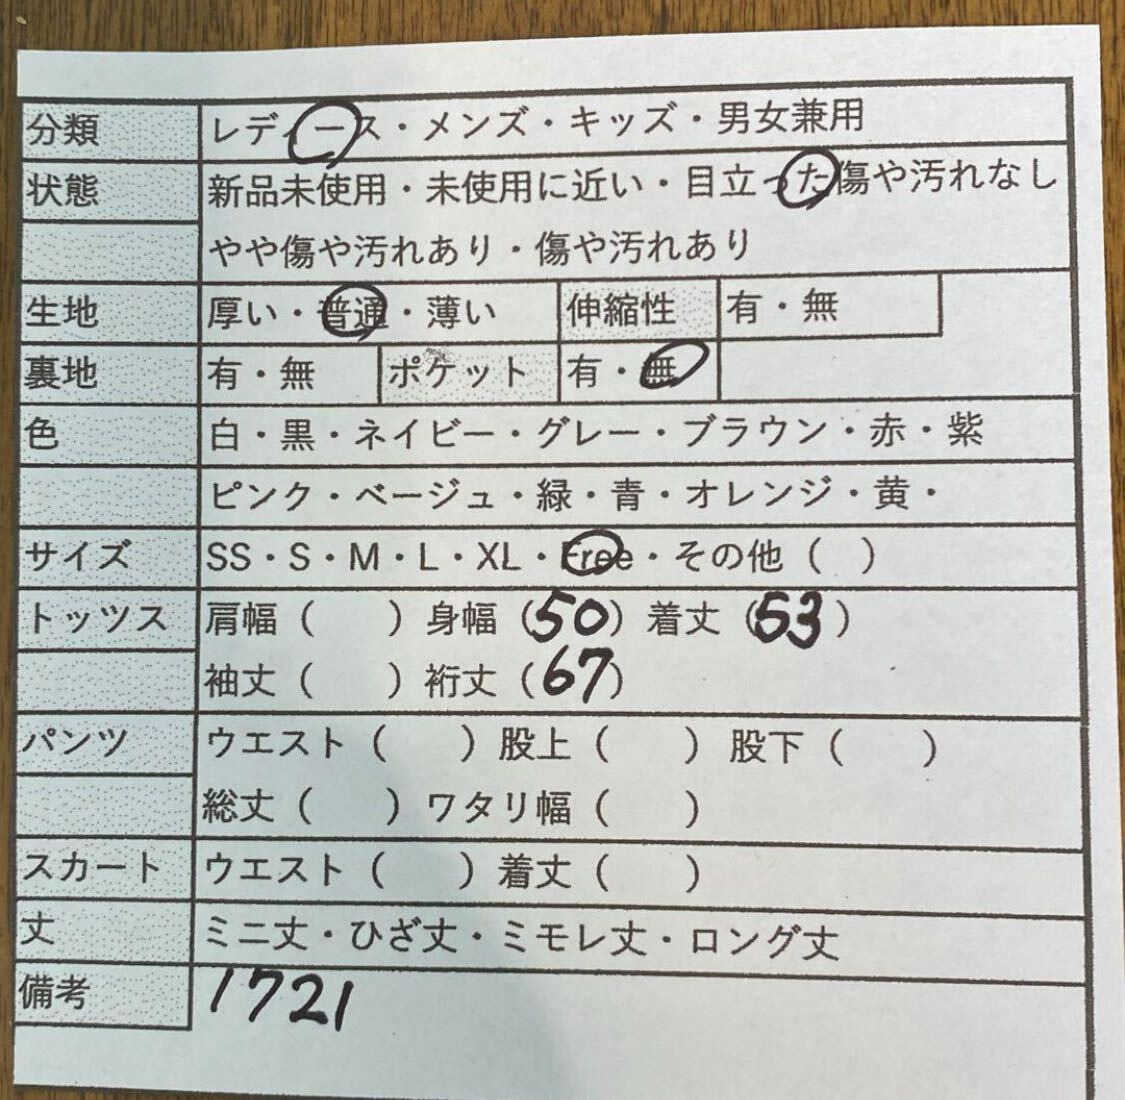 分類 レディース・メンズ・キッズ・男女兼用
状態 新品未使用・未使用に近い・目立った傷や汚れなし
やや傷や汚れあり・傷や汚れあり
生地 厚い・普通・薄い 伸縮性 有・無
裏地 有・無 ポケット 有・無
色 白・黒・ネイビー・グレー・ブラウン・赤・紫
ピンク・ベージュ・緑・青・オレンジ・黄・
サイズ SS・S・M・L・XL・Free・その他（ ）
トッツス 肩幅（ ）身幅（50）着丈（53）
袖丈（ ）裄丈（67）
パンツ ウエスト（ ）股上（ ）股下（ ）
総丈（ ）ワタリ幅（ ）
スカート ウエスト（ ）着丈（ ）
丈 ミニ丈・ひざ丈・ミモレ丈・ロング丈
備考 1721